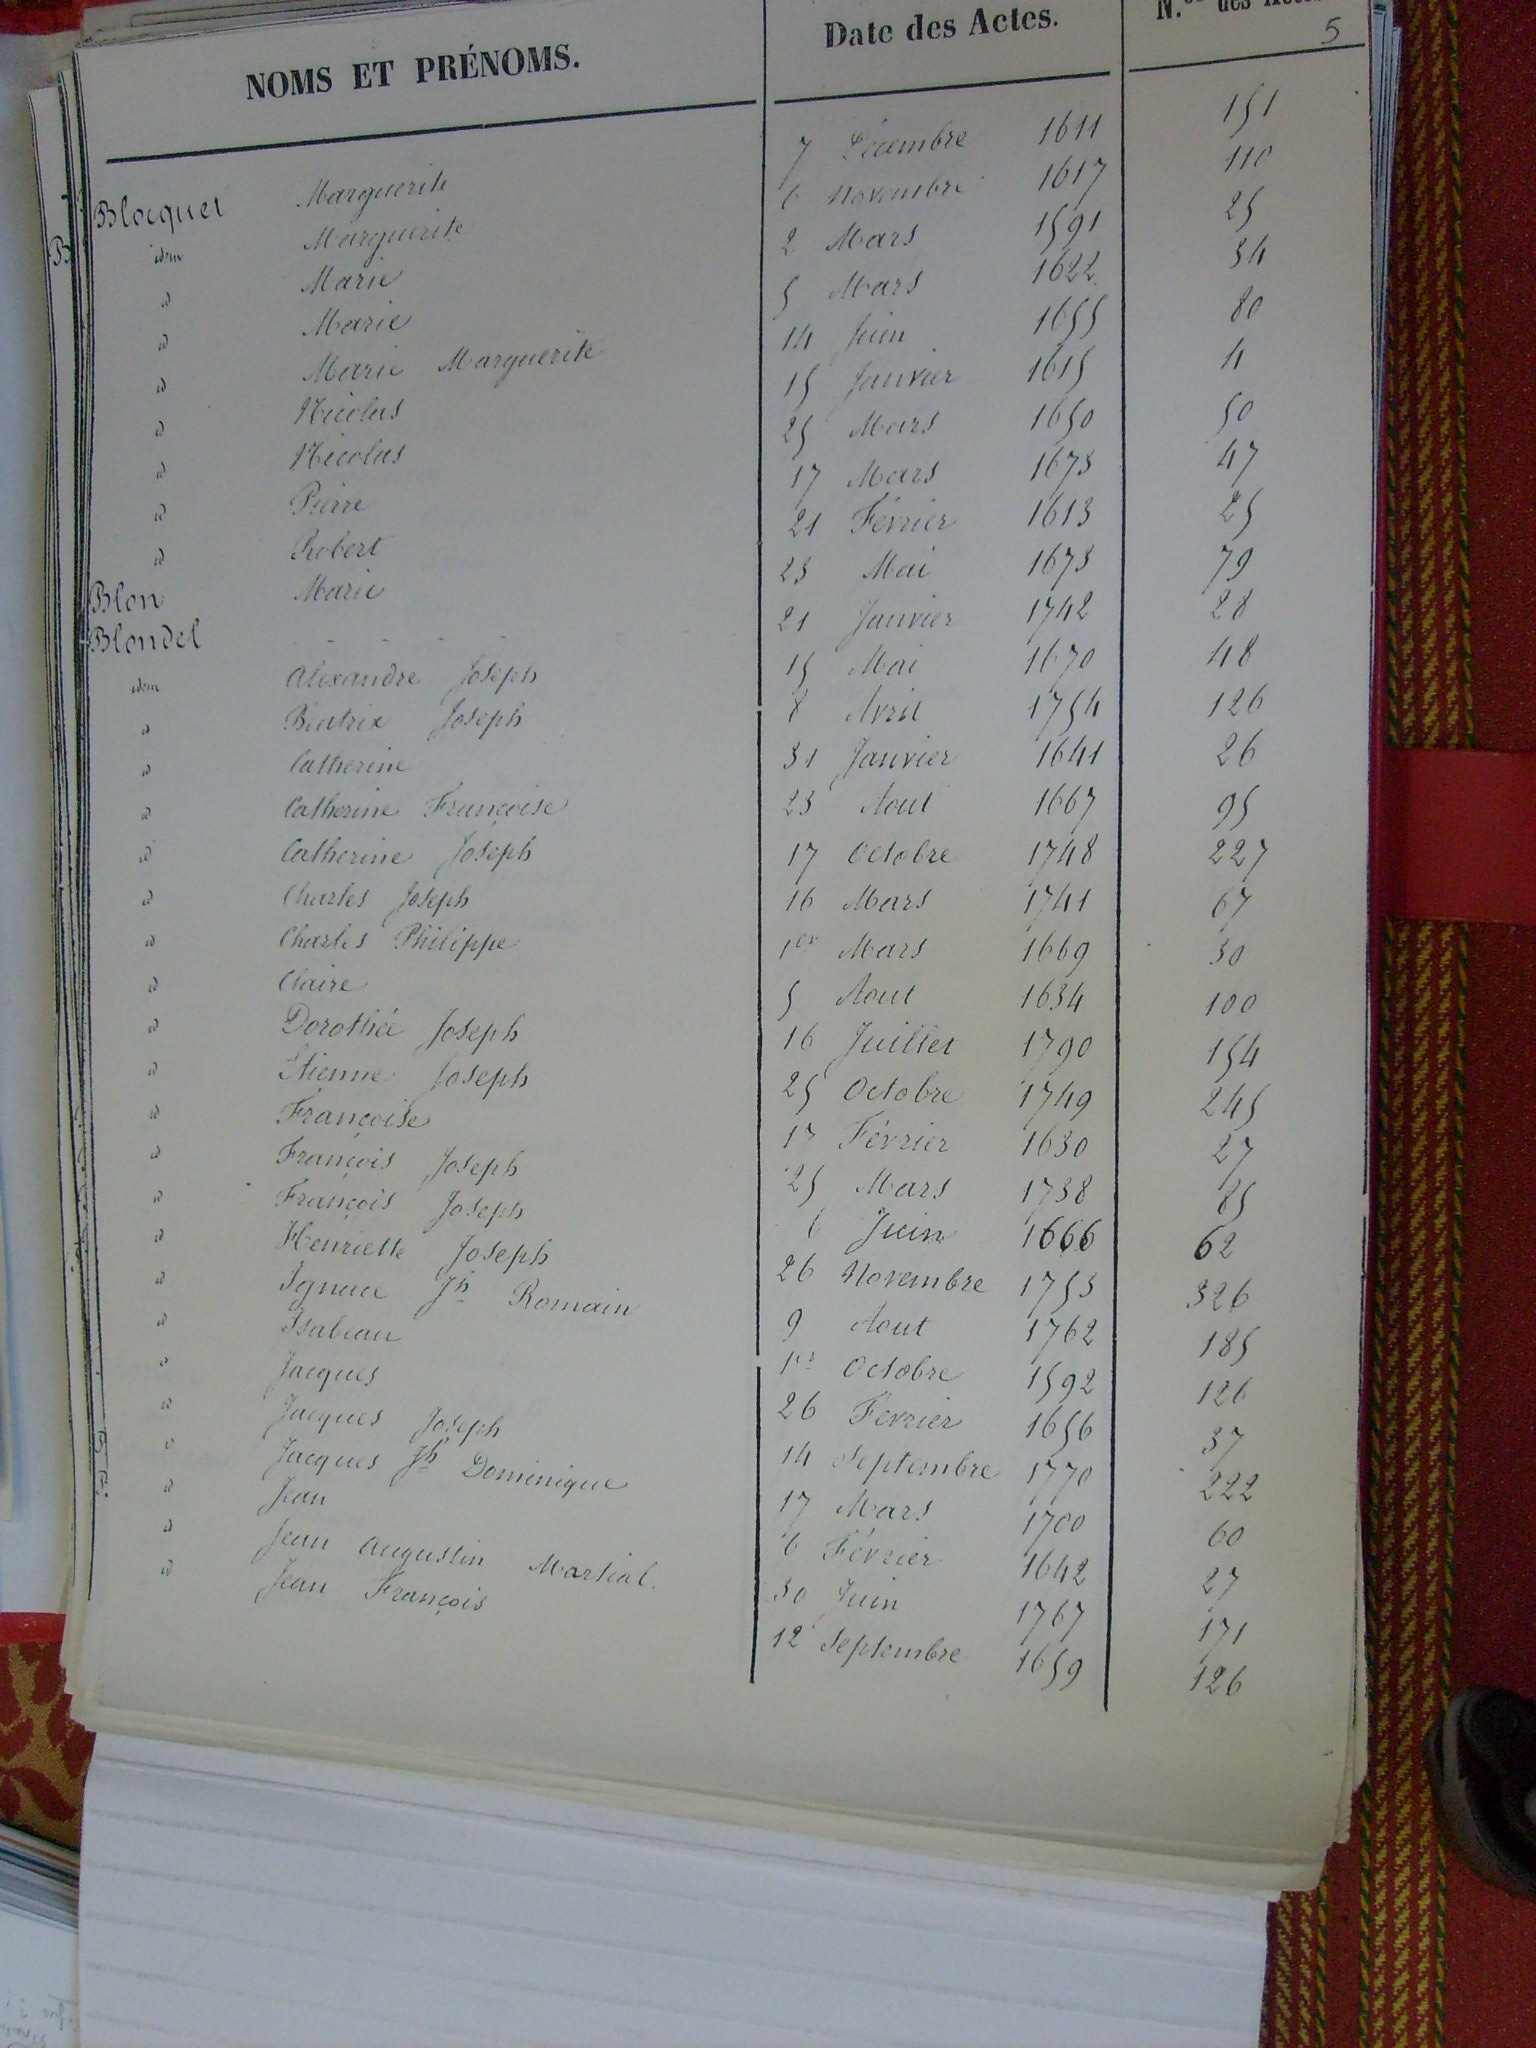 NOMS ET PRÉNOMS. Date des Actes. N.os des Actes
5
Blocquet Marguerite 7 Décembre 1611 151
idem Marguerite 6 Novembre 1617 110
id Marie 2 Mars 1591 25
id Marie 5 Mars 1622 34
id Marie Marguerite 14 Juin 1655 80
id Nicolas 15 Janvier 1615 4
id Nicolas 25 Mars 1650 50
id Pierre 17 Mars 1673 47
id Robert 21 Février 1613 25
Blon Marie 23 Mai 1673 79
Blondel - - - - 21 Janvier 1742 28
idem Alexandre Joseph 15 Mai 1670 48
id Béatrix Joseph 8 Avril 1754 126
id Catherine 31 Janvier 1641 26
id Catherine Françoise 23 Aout 1667 95
id Catherine Joseph 17 Octobre 1748 227
id Charles Joseph 16 Mars 1741 67
id Charles Philippe 1er Mars 1669 30
id Claire 5 Aout 1634 100
id Dorothée Joseph 16 Juillet 1790 154
id Etienne Joseph 25 Octobre 1749 245
id Françoise 17 Février 1630 27
id François Joseph 25 Mars 1738 85
id François Joseph 6 Juin 1666 62
id Henriette Joseph 26 Novembre 1753 326
id Ignace Jh Romain 9 Aout 1762 185
id Isabeau 1er Octobre 1592 126
id Jacques 26 Février 1656 37
id Jacques Joseph 14 Septembre 1770 222
id Jacques Jh Dominique 17 Mars 1700 60
id Jean 6 Février 1642 27
id Jean Augustin Martial. 30 Juin 1767 171
id Jean François 12 Septembre 1659 126